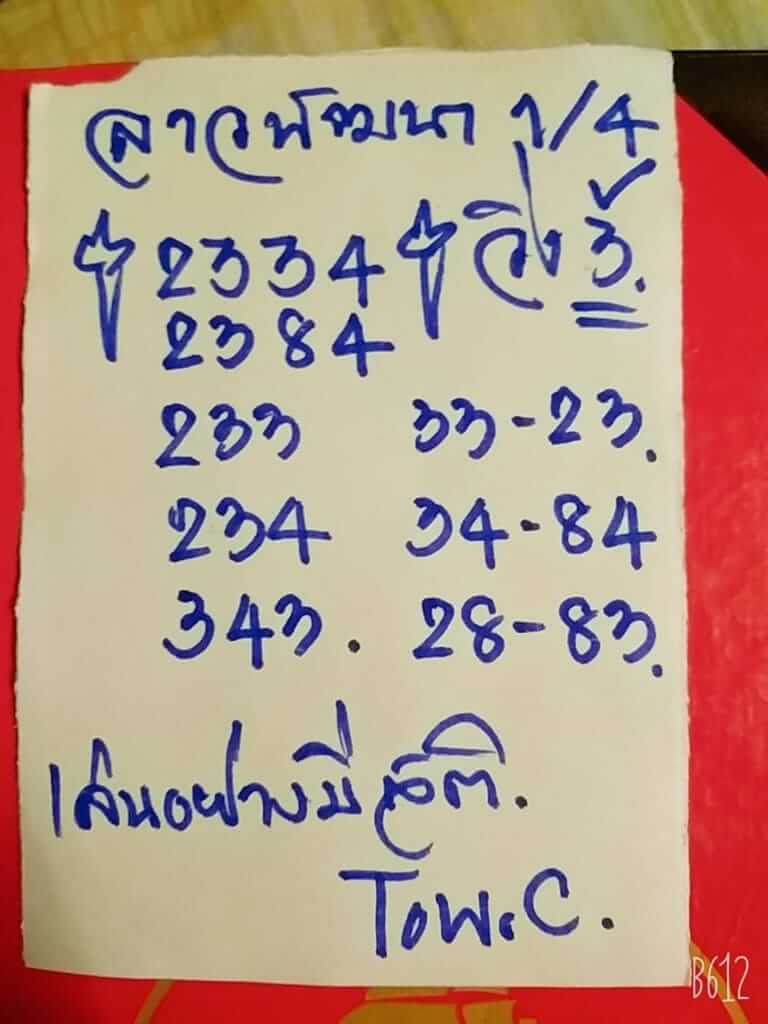 ลาวพัฒนา 1/4
2334 วิ่ง 3.
2384
233 33-23.
234 34-84
343. 28-83.
เล่นอย่างมีสติ.
B612